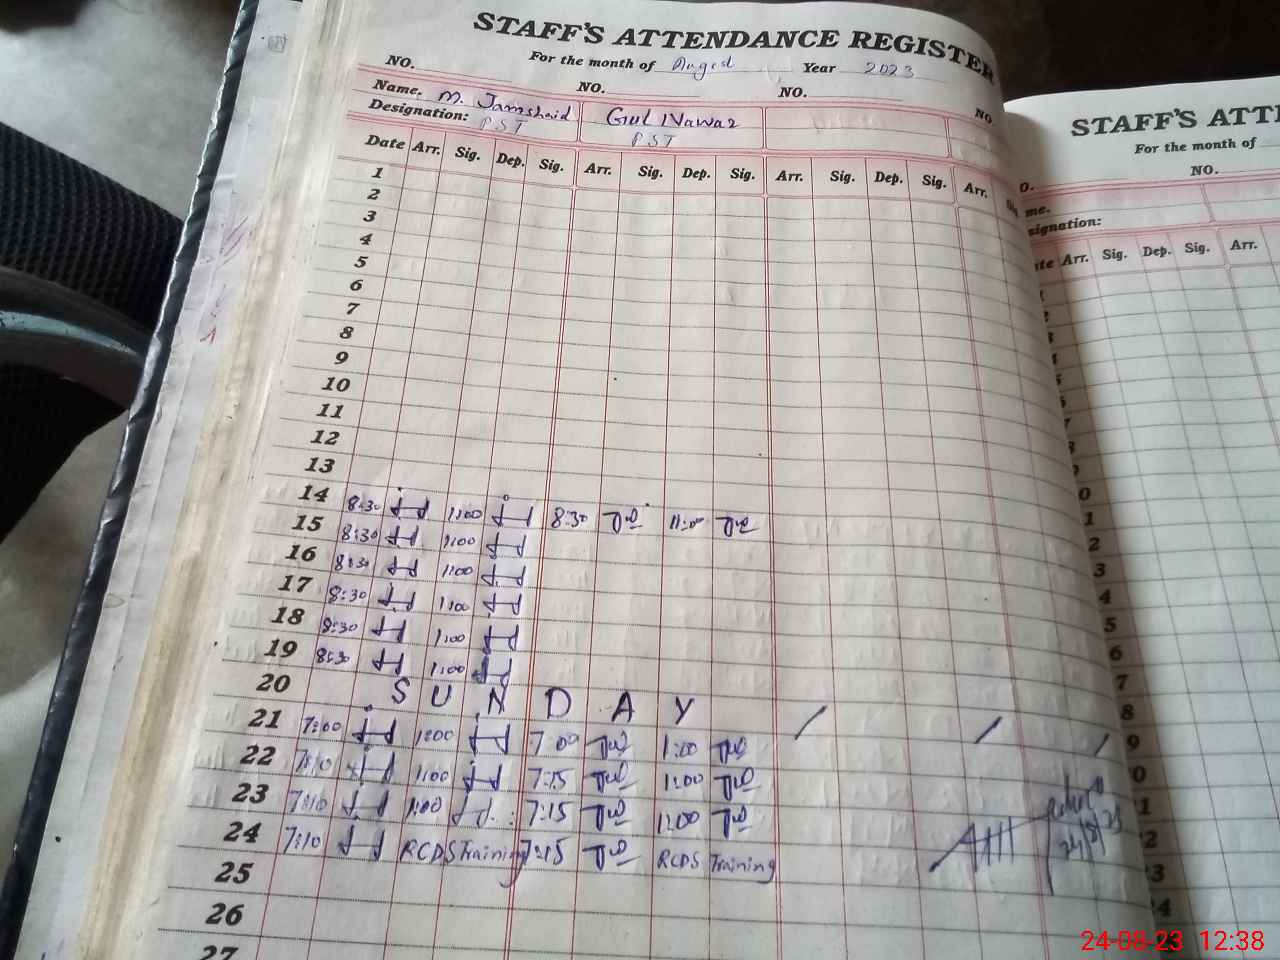 STAFF'S ATTENDANCE REGISTER
For the month of August Year 2023
NO. NO. NO. NO
Name. M. Jamshaid Gul Nawaz
Designation: PST PST
Date Arr. Sig. Dep. Sig. Arr. Sig. Dep. Sig. Arr. Sig. Dep. Sig. Arr.
1
2
3
4
5
6
7
8
9
10
11
12
13
14 8:30 1:00 8:30 11:00
15 8:30 1:00
16 8:30 1:00
17 8:30 1:00
18 8:30 1:00
19 8:30 1:00
20 SUNDAY
21 7:00 1:00 7:00 1:00
22 7:10 1:00 7:15 1:00
23 7:10 1:00 7:15 1:00
24 7:10 RCDS Training 7:15 RCDS Training
25
26
27
STAFF'S ATTE
For the month of
NO.
me.
signation:
te Arr. Sig. Dep. Sig. Arr.
24-08-23 12:38